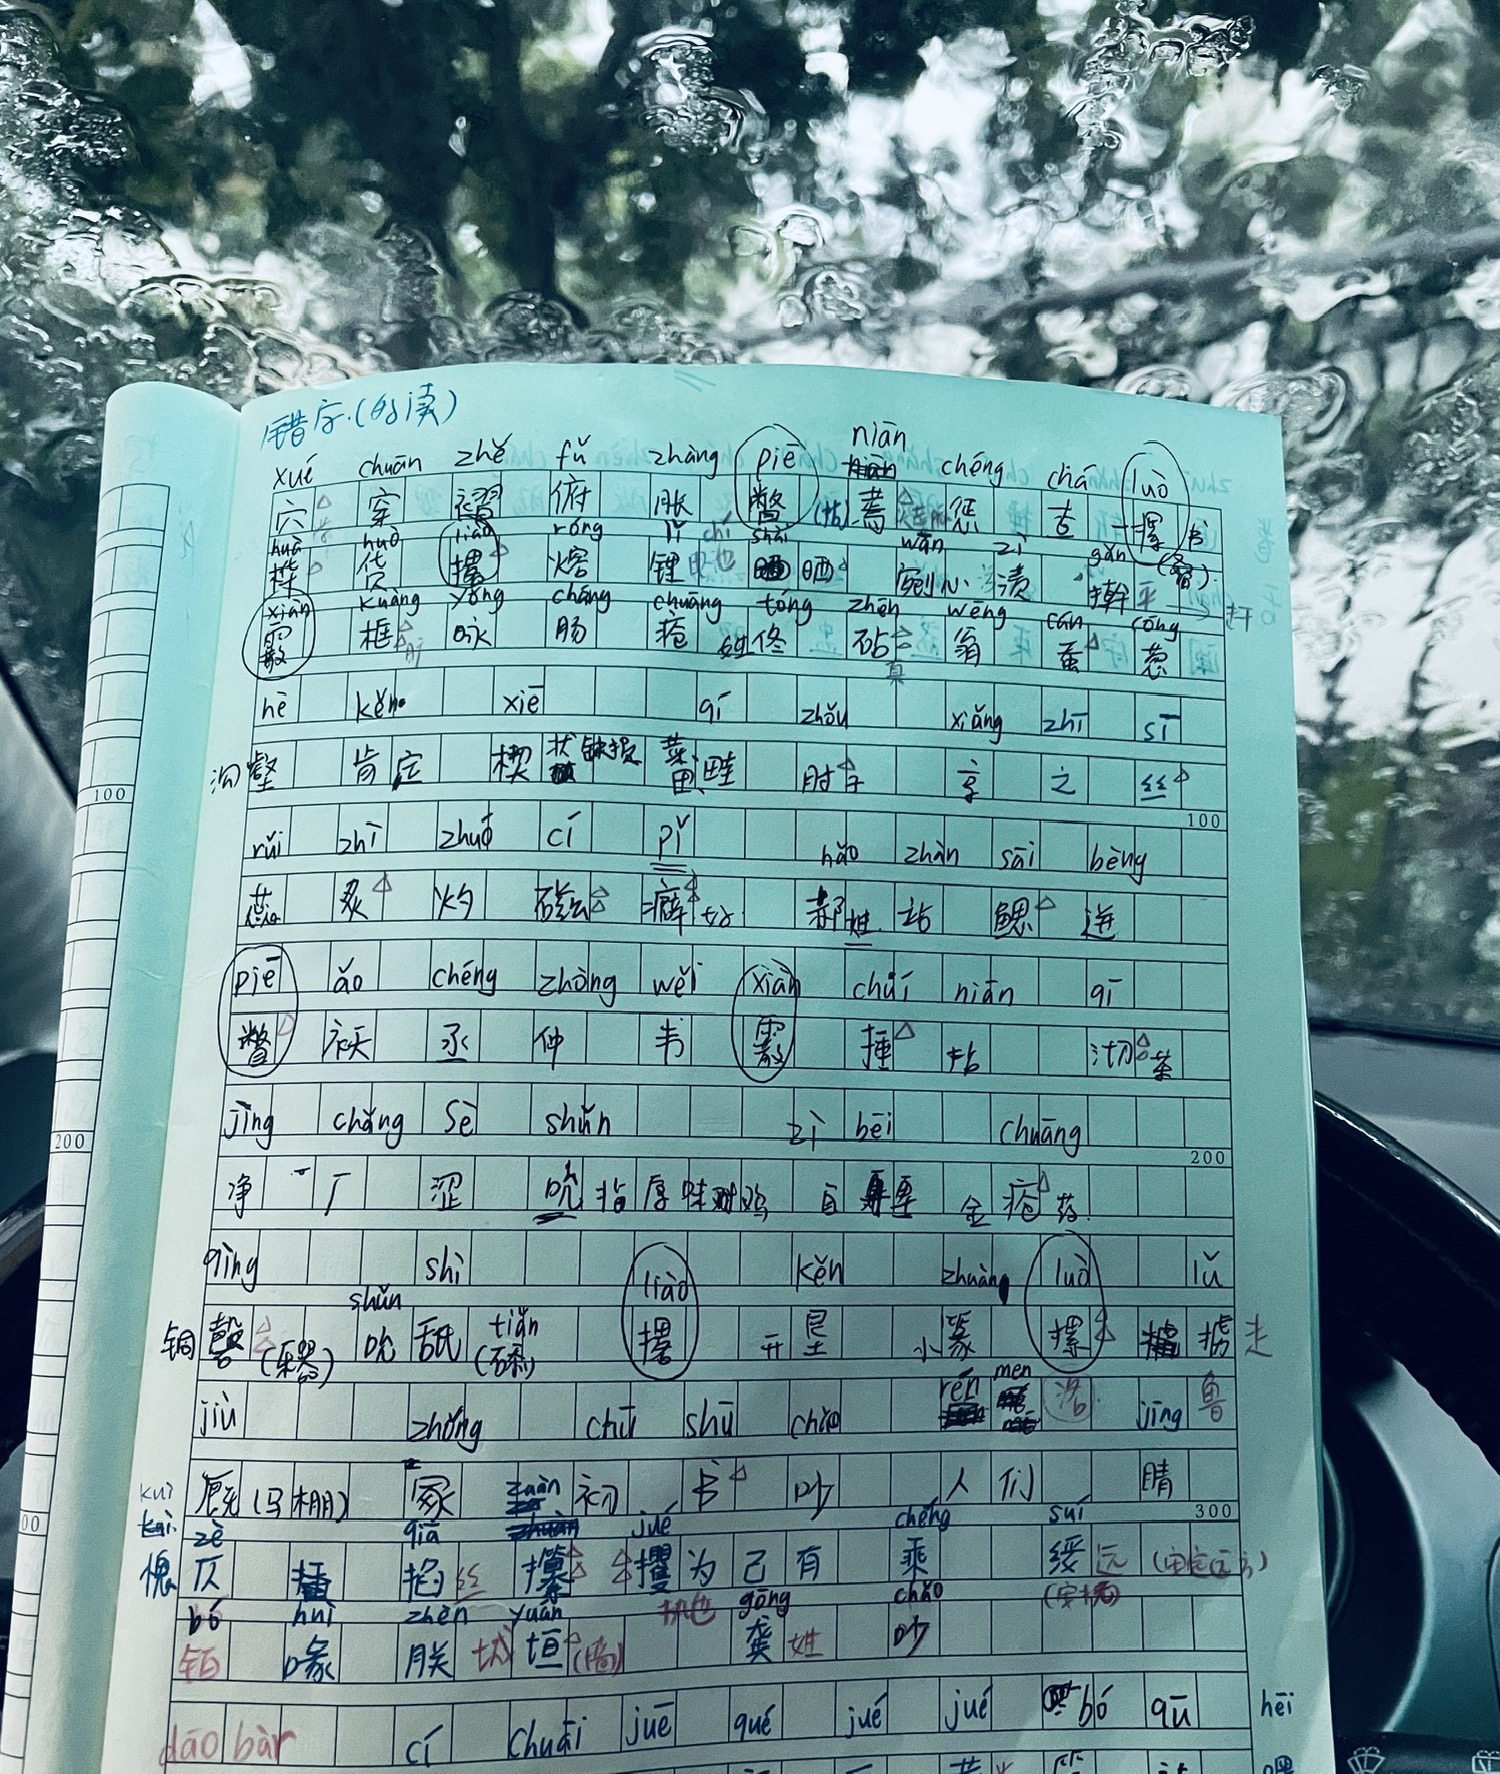 错字.(的读)
xué chuān zhě fǔ zhàng piē niān chéng chá luò
穴 穿 褶 俯 胀 瞥 (拈) 蔫 惩 一撂书
huà huò liào róng lǐ chí shài wān zì gǎn
桦 货 撂 熔 锂 电池 晒 剜心 渍 擀平
xiàn kuàng yǒng cháng chuāng tóng zhēn wēng cán cōng
霰 框 咏 肠 疮 姓佟 砧 翁 蚕 葱
真
hè kěn xiē qí zhǒu xiǎng zhī sī
沟壑 肯定 楔 状 缺损 菜田 畦 肘子 享 之 丝
100
100
ruǐ zhì zhuó cí pǐ hǎo zhàn sāi bèng
蕊 炙 灼 磁 癖 郝姓 站 鳃 迸
piē ǎo chéng zhòng wěi xiàn chuí niān qī
瞥 袄 丞 仲 韦 霰 捶 拈 沏茶
jìng chǎng sè shǔn zì bēi chuāng
200
200
净 厂 涩 吮指原味鸡 自卑 金疮药
qìng shì liào kěn zhuàn luò lǔ
shǔn tiǎn
铜磬(乐器) 吮 舐(舔) 撂 开垦 小篆 摞 掳走
jiù zhǒng chū shū chǎo rén men jīng 鲁
厩(马棚) 冢 初 书 吵 人们 睛
300
kuì zè qiā zuàn jué chéng suí
愧 仄 掐丝 攥 攫为己有 乘 绥远
bó huì zhèn yuán gōng chǎo
铂 喙 朕 城垣(墙) 龚姓 吵
dāo bàr cí chuāi juē qué jué jué bó qū hēi